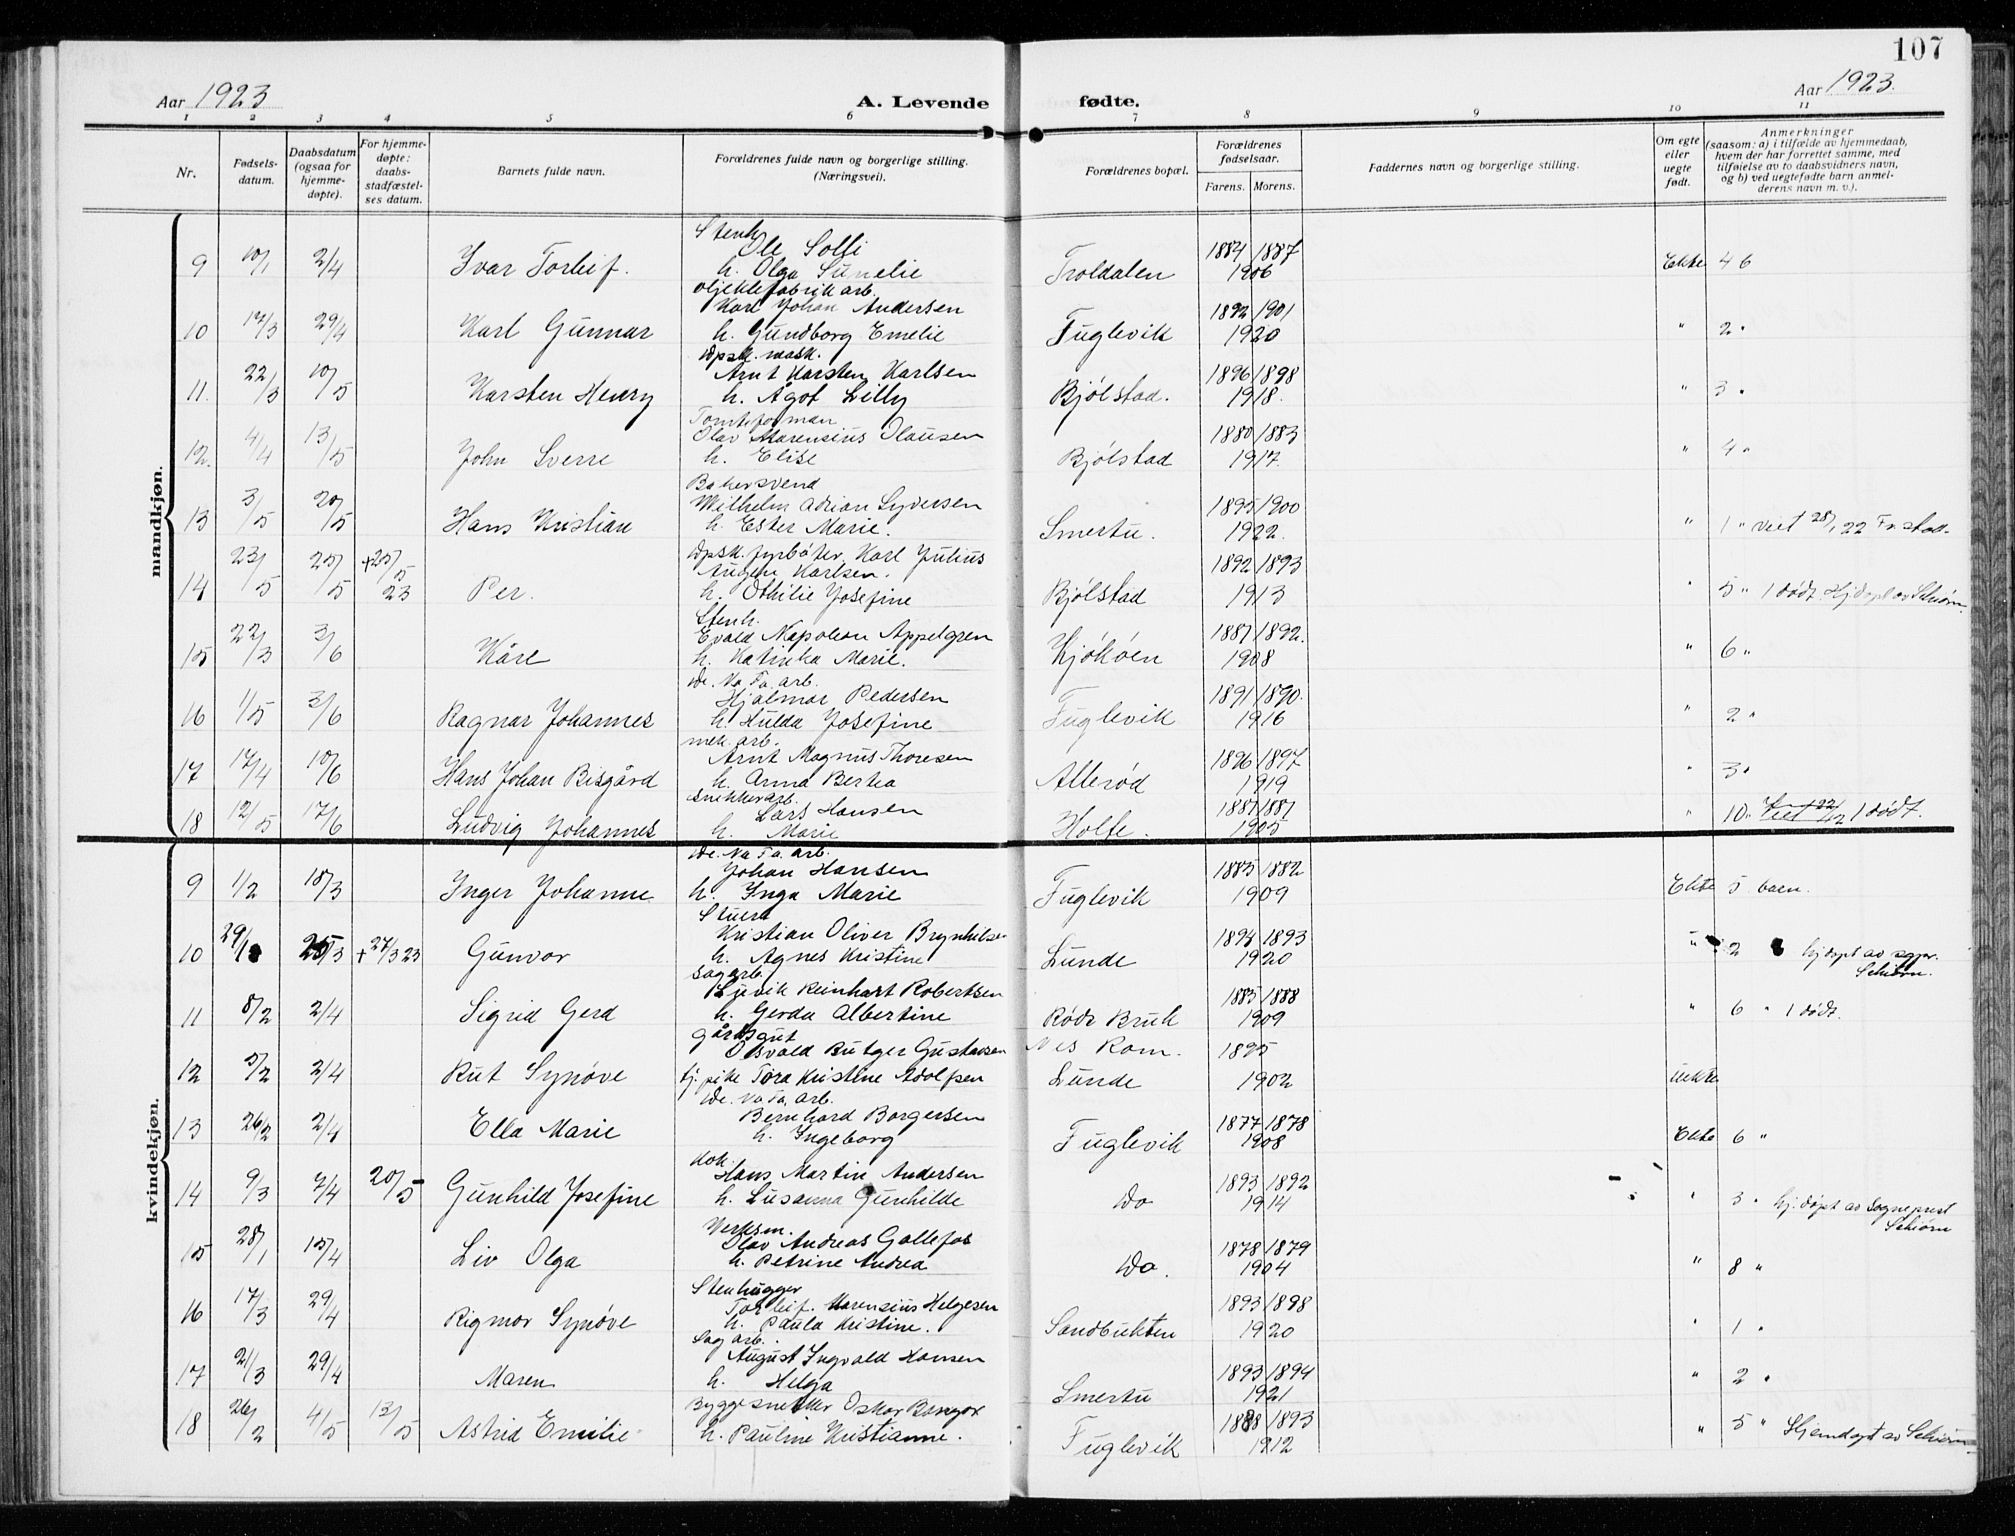 107
Aar 1923
A. Levende fødte.
Aar 1923.
1 2 3 4 5 6 7 8 9 10 11
Nr.
Fødsels-
datum.
Daabsdatum
(ogsaa for
hjemme-
døpte).
For hjemme-
døpte:
daabs-
stadfæstel-
ses datum.
Barnets fulde navn.
Forældrenes fulde navn og borgerlige stilling.
(Næringsvei).
Forældrenes bopæl.
Forældrenes
fødselsaar.
Farens. Morens.
Faddernes navn og borgerlige stilling.
Om egte
eller
uegte
født.
Anmerkninger
(saasom: a) i tilfælde av hjemmedaab,
hvem der har forrettet samme, med
tilføielse av to daabsvidners navn,
og b) ved uegtefødte barn anmel-
derens navn m. v.).
mandkjøn.
Stenh.
Ole Solli 1884 1887
9 10/1 2/4 Ivar Torleif. h. Olga Sunelie Troldalen 1906 Ekte 4 b
oljeklefabrik arb.
Karl Johan Andersen 1892 1901
10 17/3 29/4 Karl Gunnar h. Gundborg Emelie Fuglevik 1920 " 2 "
dpsk. mask.
Arnt Karsten Karlsen 1896 1898
11. 22/3 10/5 Karsten Henry h. Ågot Lilly Bjölstad. 1918. " 3 "
Tomteforman
Olav Marensius Olausen 1880 1883
12. 4/4 13/5 John Sverre h. Elise Bjölstad 1917. " 4 "
Bakersvend
Wilhelm Adrian Syversen 1895 1900
13 3/5 20/5 Hans Kristian h. Ester Marie. Smertu. 1922. " 1 " viet 28/1 22 Fr.stad.
dpsk. fyrböter Karl Julius
Augen Karlsen. 1892 1893
14 23/5 25/5 +25/5 23 Per. h. Othilie Josefine Bjölstad 1913 " 5 " 1 dödt. Hjdöpt av Schiörn.
Stenh.
Evald Napoleon Appelgren 1887 1892.
15 22/3 3/6 Kåre h. Katinka Marie. Kjököen 1908 " 6 "
De. No Fa. arb.
Hjalmar Pedersen 1891 1890.
16 1/5 3/6 Ragnar Johannes h. Hulda Josefine Fuglevik 1916 " 2 "
mek. arb.
Arnt Magnus Thoresen 1896 1897
17 17/4 10/6 Hans Johan Bisgård h. Anna Bertea Allerød 1919 " 3 "
snekkerarb.
Lars Hansen 1881 1881
18 12/5 17/6 Ludvig Johannes h. Marie Holte. 1905 " 10 " viet 22/12 1 dödt.
kvindekjøn.
De. No Fa. arb.
Johan Hansen 1883 1882
9 1/2 18/3 Inger Johanne h. Inga Marie Fuglevik 1909 Ekte 5 baen.
Stuert
Kristian Oliver Brynhilsen 1894 1893
10 29/1 25/3 +27/3 23 Gunvor h. Agnes Kristine Lunde 1920 " 2 hjdöpt av sgpr.
Schiörn.
sagarb.
Ludvik Reinhart Robertsen 1885 1888
11 8/2 2/4 Sigrid Gerd h. Gerda Albertine Röds Bruk 1909 " 6 " 1 dödt.
gårdsgut
Osvald Rutger Gustavsen Nes Rom. 1895
12 3/2 2/4 Rut Synöve tj. pike Tora Kristine Adolfsen Lunde 1902 uekte
De. No Fa. arb.
Bernhard Borgersen 1877 1878
13 26/2 2/4 Ella Marie h. Ingeborg Fuglevik 1908 Ekte 6 "
Kok.
Hans Martin Andersen 1893 1892
14 9/3 2/4 20/5 Gunhild Josefine h. Susanna Gunhilde Do 1914 " 3 " hj. döpt av Sogneprest
Schiörn
Verksm.
Olav Andreas Gallefos 1878 1879
15 28/1 15/4 Liv Olga h. Petrine Andrea Do. 1904 " 8 "
Stenhugger
Torleif. Marensius Helgesen 1893 1898
16 17/3 29/4 Rigmor Synöve h. Paula Kristine. Sandbukten 1920 " 1 "
Sag arb.
August Ingvald Hansen 1893 1894
17 21/3 29/4 Maren h. Helga Smertu 1921 " 2 "
Byggesnekker Oskar Bangor 1888 1893
18 26/2 4/5 13/5 Astrid Emilie h. Pauline Kristianne. Fuglevik 1912 " 5 " Hjemdöpt av Schiörn